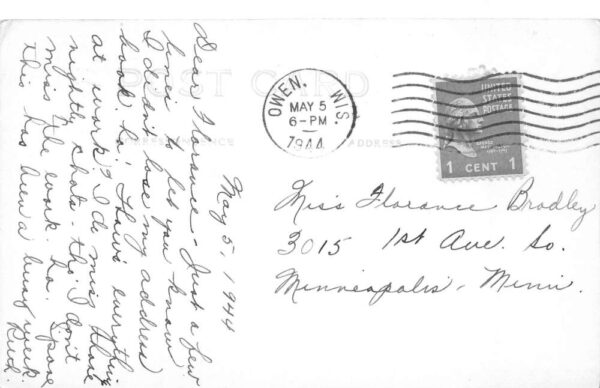 POST CARD
CORRESPONDENCE
ADDRESS
May 5, 1944
Dear Florance - Just a few
lines to let you know
I didn't lose my address
book, ha! Hows everything
at work? I do miss those
nightly chats - tho. I don't
miss the work. ha.
this has been a busy week.
Ruth.
OWEN, WIS.
MAY 5
6-PM
1944
UNITED
STATES
POSTAGE
1 CENT 1
Miss Florance Bradley
3015 1st Ave. So.
Minneapolis, Minn.